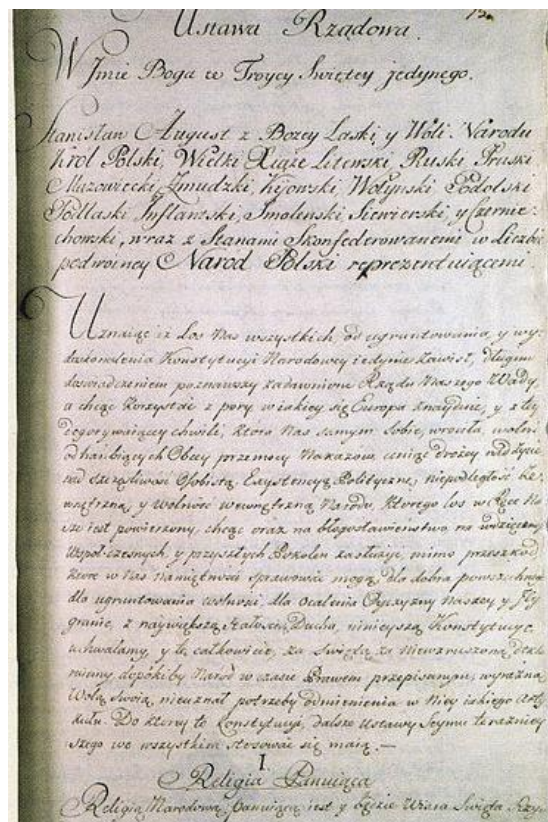 13.
Ustawa Rządowa.
W Imie Boga w Troycy Swiętey jedynego.
Stanisław August z Bożey Łaski y Woli Narodu
Krol Polski, Wielki Xiąże Litewski, Ruski, Pruski
Mazowiecki, Zmudzki, Kijowski, Wołynski, Podolski
Podlaski, Inflantski, Smolenski, Siewierski, y Czernie-
chowski, wraz z Stanami Skonfederowanemi w Liczbie
podwoyney Narod Polski reprezentuiącemi
Uznaiąc iż Los Nas wszystkich, od ugruntowania y wy-
doskonalenia Konstytucyi Narodowey iedynie zawisł, długim
doswiadczeniem poznawszy zadawnione Rządu Naszego Wady,
a chcąc korzystać z pory, w iakiey się Europa znayduie, y z tey
dogorywaiącey chwili, ktora Nas samym Sobie wrociła, wolni
od hanbiących Obcey przemocy Nakazow, ceniąc drożey nad życie
nad szczęsliwość Osobistą, Exystencyą Polityczną, niepodległość ze-
wnętrzną, y wolność wewnętrzną Narodu, ktorego los w Ręce Na-
sze iest powierzony, chcąc oraz na błogosławienstwo, na wdzięczność
Wspoł-czesnych y przyszłych Pokolen zasłużyć, mimo przeszkod
ktore w Nas Namiętności sprawować mogą, dla dobra powszechnego
dla ugruntowania wolności, dla ocalenia Oyczyzny Naszey y Jey
granic, z naywiększą stałością Ducha, ninieyszą Konstytucyę
uchwalamy, y tę całkowicie za Swiętą, za Niewzruszoną, dekla-
ruiemy, dopókiby Naród w czasie Prawem przepisanym, wyraźną
Wolą Swoią, nieuznał potrzeby odmienienia w Niey iakiego Arty-
kułu. Do ktorey to Konstytucyi, dalsze Ustawy Seymu terazniey-
szego we wszystkim stosować się maią. —
I
Religia Panuiąca
Religią Narodową panuiącą iest y będzie Wiara Swięta Rzym